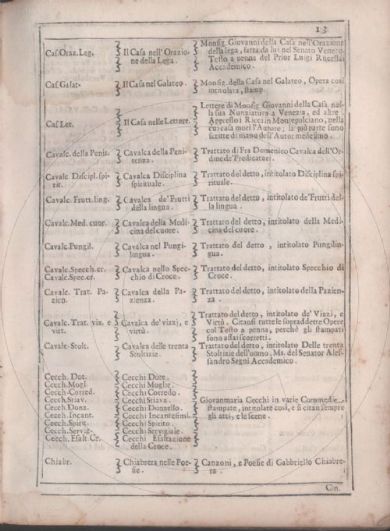 13
Caſ.Oraz.Leg. Il Caſa nell'Orazione della Lega. Monſig. Giovanni della Caſa nell'Orazione
della lega, fatta da lui nel Senato Veneto.
Teſto a penna del Prior Luigi Rucellai
Accademico.
Caſ.Galat. Il Caſa nel Galateo. Monſig. della Caſa nel Galateo, Opera così
intitolata, ſtamp.
Caſ.Let. Il Caſa nelle Lettere. Lettere di Monſig. Giovanni della Caſa, nella
ſua Nunziatura a Venezia, ed altre
Appreſſo i Riccin Montepulciano, nella
cui caſa morì l'Autore; la più parte ſono
ſcritte di mano dell'Autor medeſimo.
Cavalc. della Penit. Cavalca della Penitenza. Trattato di Fra Domenico Cavalca dell'Ordine
de'Predicatori.
Cavalc. Diſcipl. ſpirit. Cavalca Diſciplina
ſpirituale. Trattato del detto, intitolato Diſciplina ſpirituale.
Cavalc. Frutt. ling. Cavalca de' Frutti
della lingua. Trattato del detto, intitolato de'Frutti della
lingua.
Cavalc. Med. cuor. Cavalca della Medicina
del cuore. Trattato del detto, intitolato della Medicina
del cuore.
Cavalc.Pungil. Cavalca nel Pungilingua. Trattato del detto, intitolato Pungilingua.
Cavalc.Specch.cr.
Cavalc.Spec.cr. Cavalca nello Specchio
di Croce. Trattato del detto, intitolato Specchio di
Croce.
Cavalc. Trat. Pazien. Cavalca della Pazienza. Trattato del detto, intitolato della Pazienza.
Cavalc. Trat. viz. e
virt. Cavalca de' vizzj, e
virtù. Trattato del detto, intitolato de' Vizzj, e
Virtù. Citanſi tutte le ſopraddette Opere
col Teſto a penna, perchè gli ſtampati
ſono aſſai ſcorretti.
Cavalc.Stolt. Cavalca delle trenta
Stoltizie. Trattato del detto, intitolato Delle trenta
Stoltizie dell'uomo. Mſ. del Senator Aleſſandro
Segni Accademico.
Cecch. Dot. Cecchi Dote.
Cecch.Mogl. Cecchi Moglie.
Cecch.Corred. Cecchi Corredo.
Cecch.Stiav. Cecchi Stiava. Giovanmaria Cecchi in varie Commedie
Cecch.Donz. Cecchi Donzello. ſtampate, intitolate così, e ſi citan ſempre
Cecch. Incant. Cecchi Incanteſimi. gli atti, e le ſcene.
Cecch. Spirit. Cecchi Spirito.
Cecch. Servig. Cecchi Servigiale.
Cecch. Eſalt. Cr. Cecchi Eſaltazione
della Croce.
Chiabr. Chiabrera nelle Poeſie. Canzoni, e Poeſie di Gabbriello Chiabrera.
Cin.